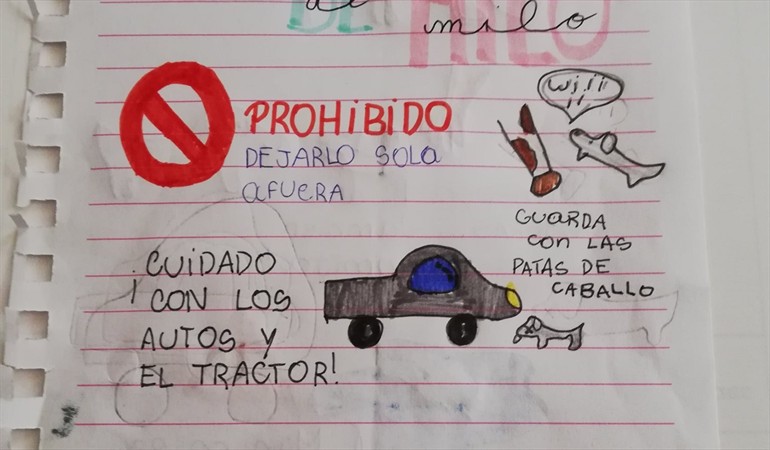 de milo
DE MILO
PROHIBIDO
DEJARLO SOLO
AFUERA
Wiiii
¡CUIDADO
CON LOS
AUTOS Y
EL TRACTOR!
GUARDA
CON LAS
PATAS DE
CABALLO